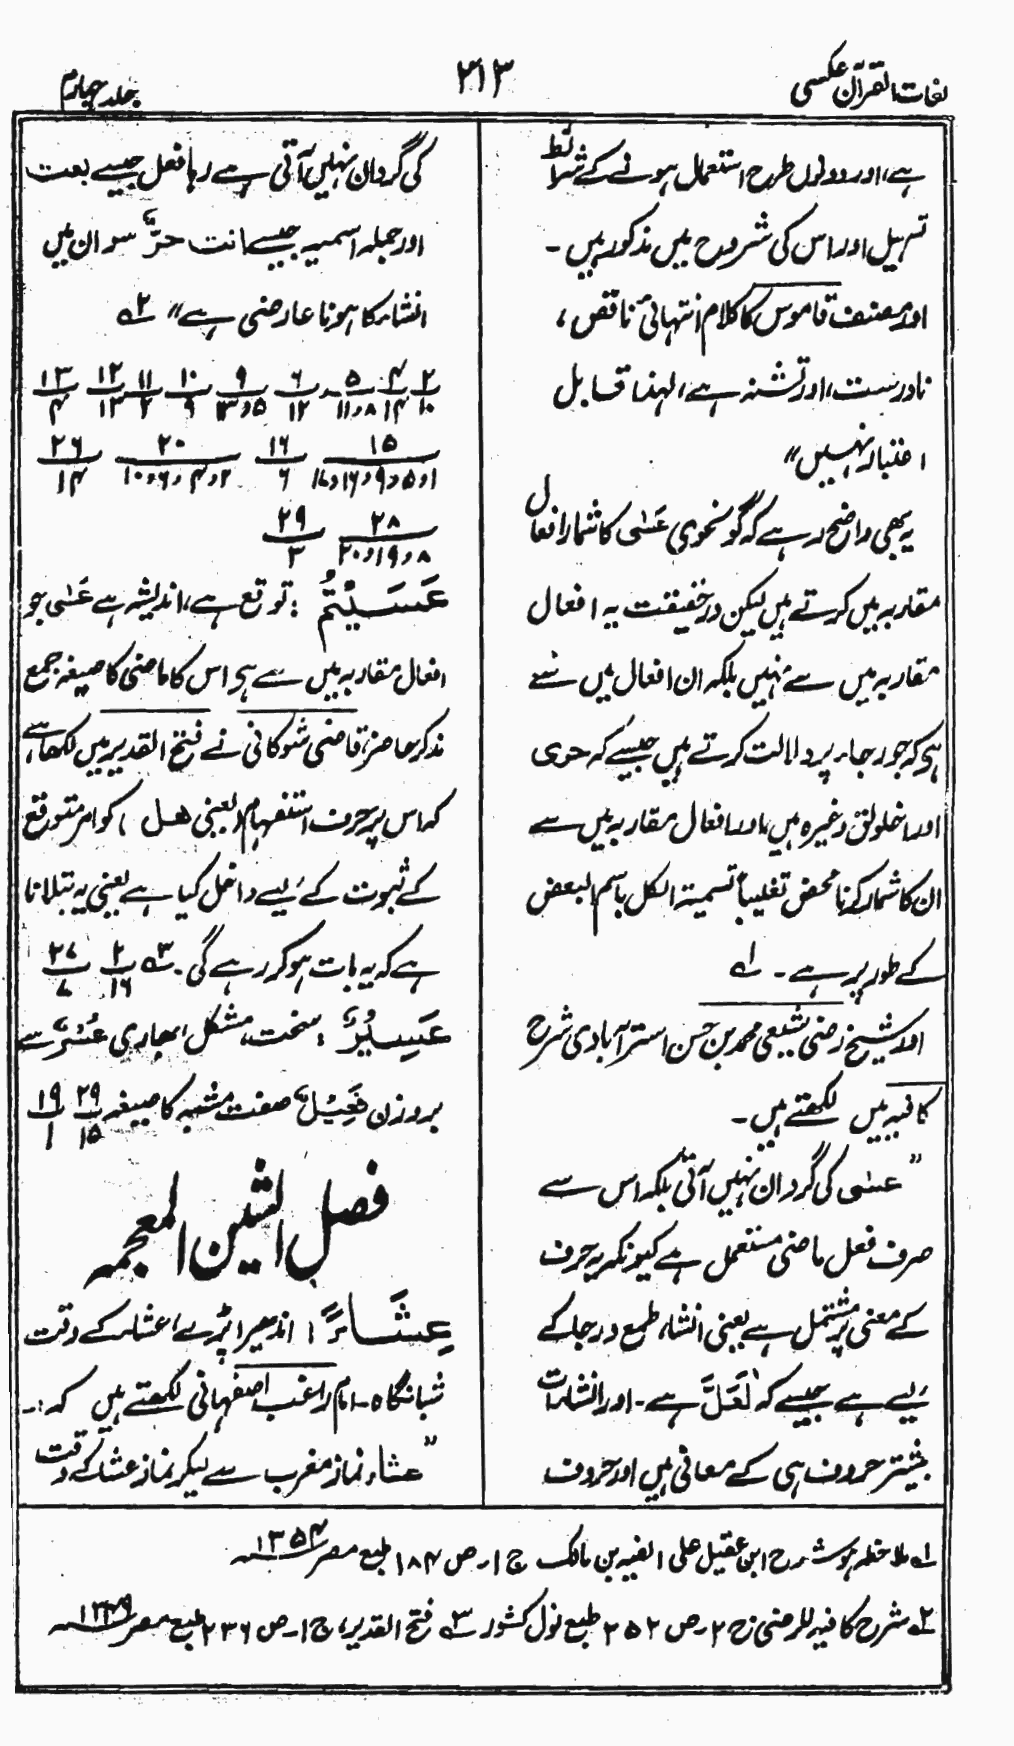 لغات القرآن عکسی
۳۱۳
جلد چہارم
ہے، اور دونوں طرح استعمال ہونے کے شرائط
تسہیل اور اس کی شروح میں مذکور ہیں ۔
اور مصنف قاموس کا کلام انتہائی ناقص ،
نادرست، اور تشنہ ہے، لہٰذا قابل
اعتبار نہیں ״
یہ بھی واضح رہے کہ گو نحوی عَسٰی کا شمار افعال
مقاربہ میں کرتے ہیں لیکن درحقیقت یہ افعال
مقاربہ میں سے نہیں بلکہ ان افعال میں سے
ہی کہ جو رجاء پر دلالت کرتے ہیں جیسے کہ حری
اور اخلولق وغیرہ ہیں، اور افعال مقاربہ میں سے
ان کا شمار کرنا محض تغلیباً تسمیۃ الکل باسم البعض
کے طور پر ہے ۔ لہ
اور شیخ رضی شیعی محمد بن حسن استرآبادی شرح
کافیہ میں لکھتے ہیں ۔
״ عسٰی کی گردان نہیں آتی بلکہ اس سے
صرف فعل ماضی مستعمل ہے کیونکہ یہ حرف
کے معنی پر مشتمل ہے یعنی انشاء طمع و رجا کے
لیے ہے جیسے کہ لَعَلَّ ہے ۔ اور انشاءات
بیشتر حروف ہی کے معانی ہیں اور حروف
کی گردان نہیں آتی ہے رہا فعل جیسے بعت
اور جملہ اسمیہ جیسے انت حرٌّ سو ان میں
انشاء کا ہونا عارضی ہے ״ ۲ہ
۲/۱۰ ۴/۱۴ ۵/۸ر۱۱ ۶/۱۲ ۹/۵ر۱۳ ۱۰/۹ ۱۱/۲ ۱۲/۱۳ ۱۳/۴
۱۵/۱ر۵ر۹ر۱۶ر۱۷ ۱۶/۶ ۲۰/۲ر۴ر۶ر۱۰ ۲۶/۱۴
۲۸/۸ر۱۹ر۲۰ ۲۹/۳
عَسَیْتُمْ : توقع ہے، اندیشہ ہے عَسٰی جو
افعال مقاربہ میں سے ہی اس کا ماضی کا صیغہ جمع
مذکر حاضر، قاضی شوکانی نے فتح القدیر میں لکھا ہے
کہ اس پر حرف استفہام (یعنی ھل ) کو امر متوقع
کے ثبوت کے لیے داخل کیا ہے یعنی یہ بتلانا
ہے کہ یہ بات ہو کر رہے گی ۔ ۳ہ ۲/۱۶ ۲۷/۷
عَسِیْرٌ : سخت، مشکل، بھاری عُسْرٌ سے
بروزن فَعِیْلٌ صفت مشبہ کا صیغہ ۲۹/۱۵ ۱۹/۱
فصل الشین المعجمہ
عِشَاءً : اندھیرا پڑے، عشاء کے وقت
شبانگاہ ۔ امام راغب اصفہانی لکھتے ہیں کہ :۔
״ عشاء نماز مغرب سے لیکر نماز عشاء کے وقت
لہ ملاحظہ ہو شرح ابن عقیل علی الفیہ بن مالک ج ۱ ۔ ص ۱۸۴ طبع مصر ۱۳۵۴ھ
۲ہ شرح کافیہ للرضی ج ۲ ۔ ص ۲۵۲ طبع نول کشور ۳ہ فتح القدیر، ج ۱ ۔ ص ۲۳۶ طبع مصر ۱۳۴۹ھ